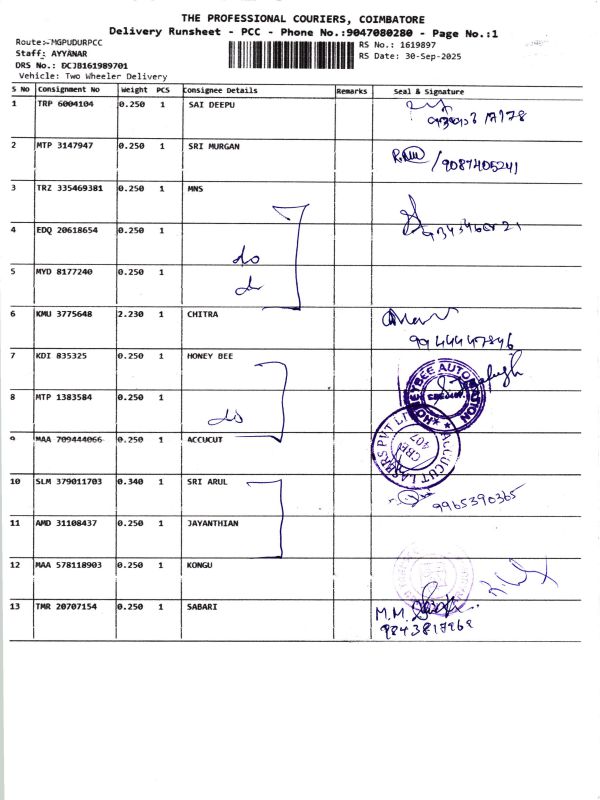 THE PROFESSIONAL COURIERS, COIMBATORE
Delivery Runsheet - PCC - Phone No.:9047080280 - Page No.:1
Route:-MGPUDURPCC
Staff: AYYANAR
DRS No.: DCJB161989701
Vehicle: Two Wheeler Delivery
RS No.: 1619897
RS Date: 30-Sep-2025
S No Consignment No Weight PCS Consignee Details Remarks Seal & Signature
1 TRP 6004104 0.250 1 SAI DEEPU
2 MTP 3147947 0.250 1 SRI MURGAN
9087405241
3 TRZ 335469381 0.250 1 MNS
4 EDQ 20618654 0.250 1
do
5 MYD 8177240 0.250 1
do
6 KMU 3775648 2.230 1 CHITRA
9944447846
7 KDI 835325 0.250 1 HONEY BEE
8 MTP 1383584 0.250 1
do
9 MAA 709444066 0.250 1 ACCUCUT
ACCUCUT LASERS PVT LTD
10 SLM 379011703 0.340 1 SRI ARUL
9965390365
11 AMD 31108437 0.250 1 JAYANTHIAN
12 MAA 578118903 0.250 1 KONGU
13 TMR 20707154 0.250 1 SABARI
M.M.